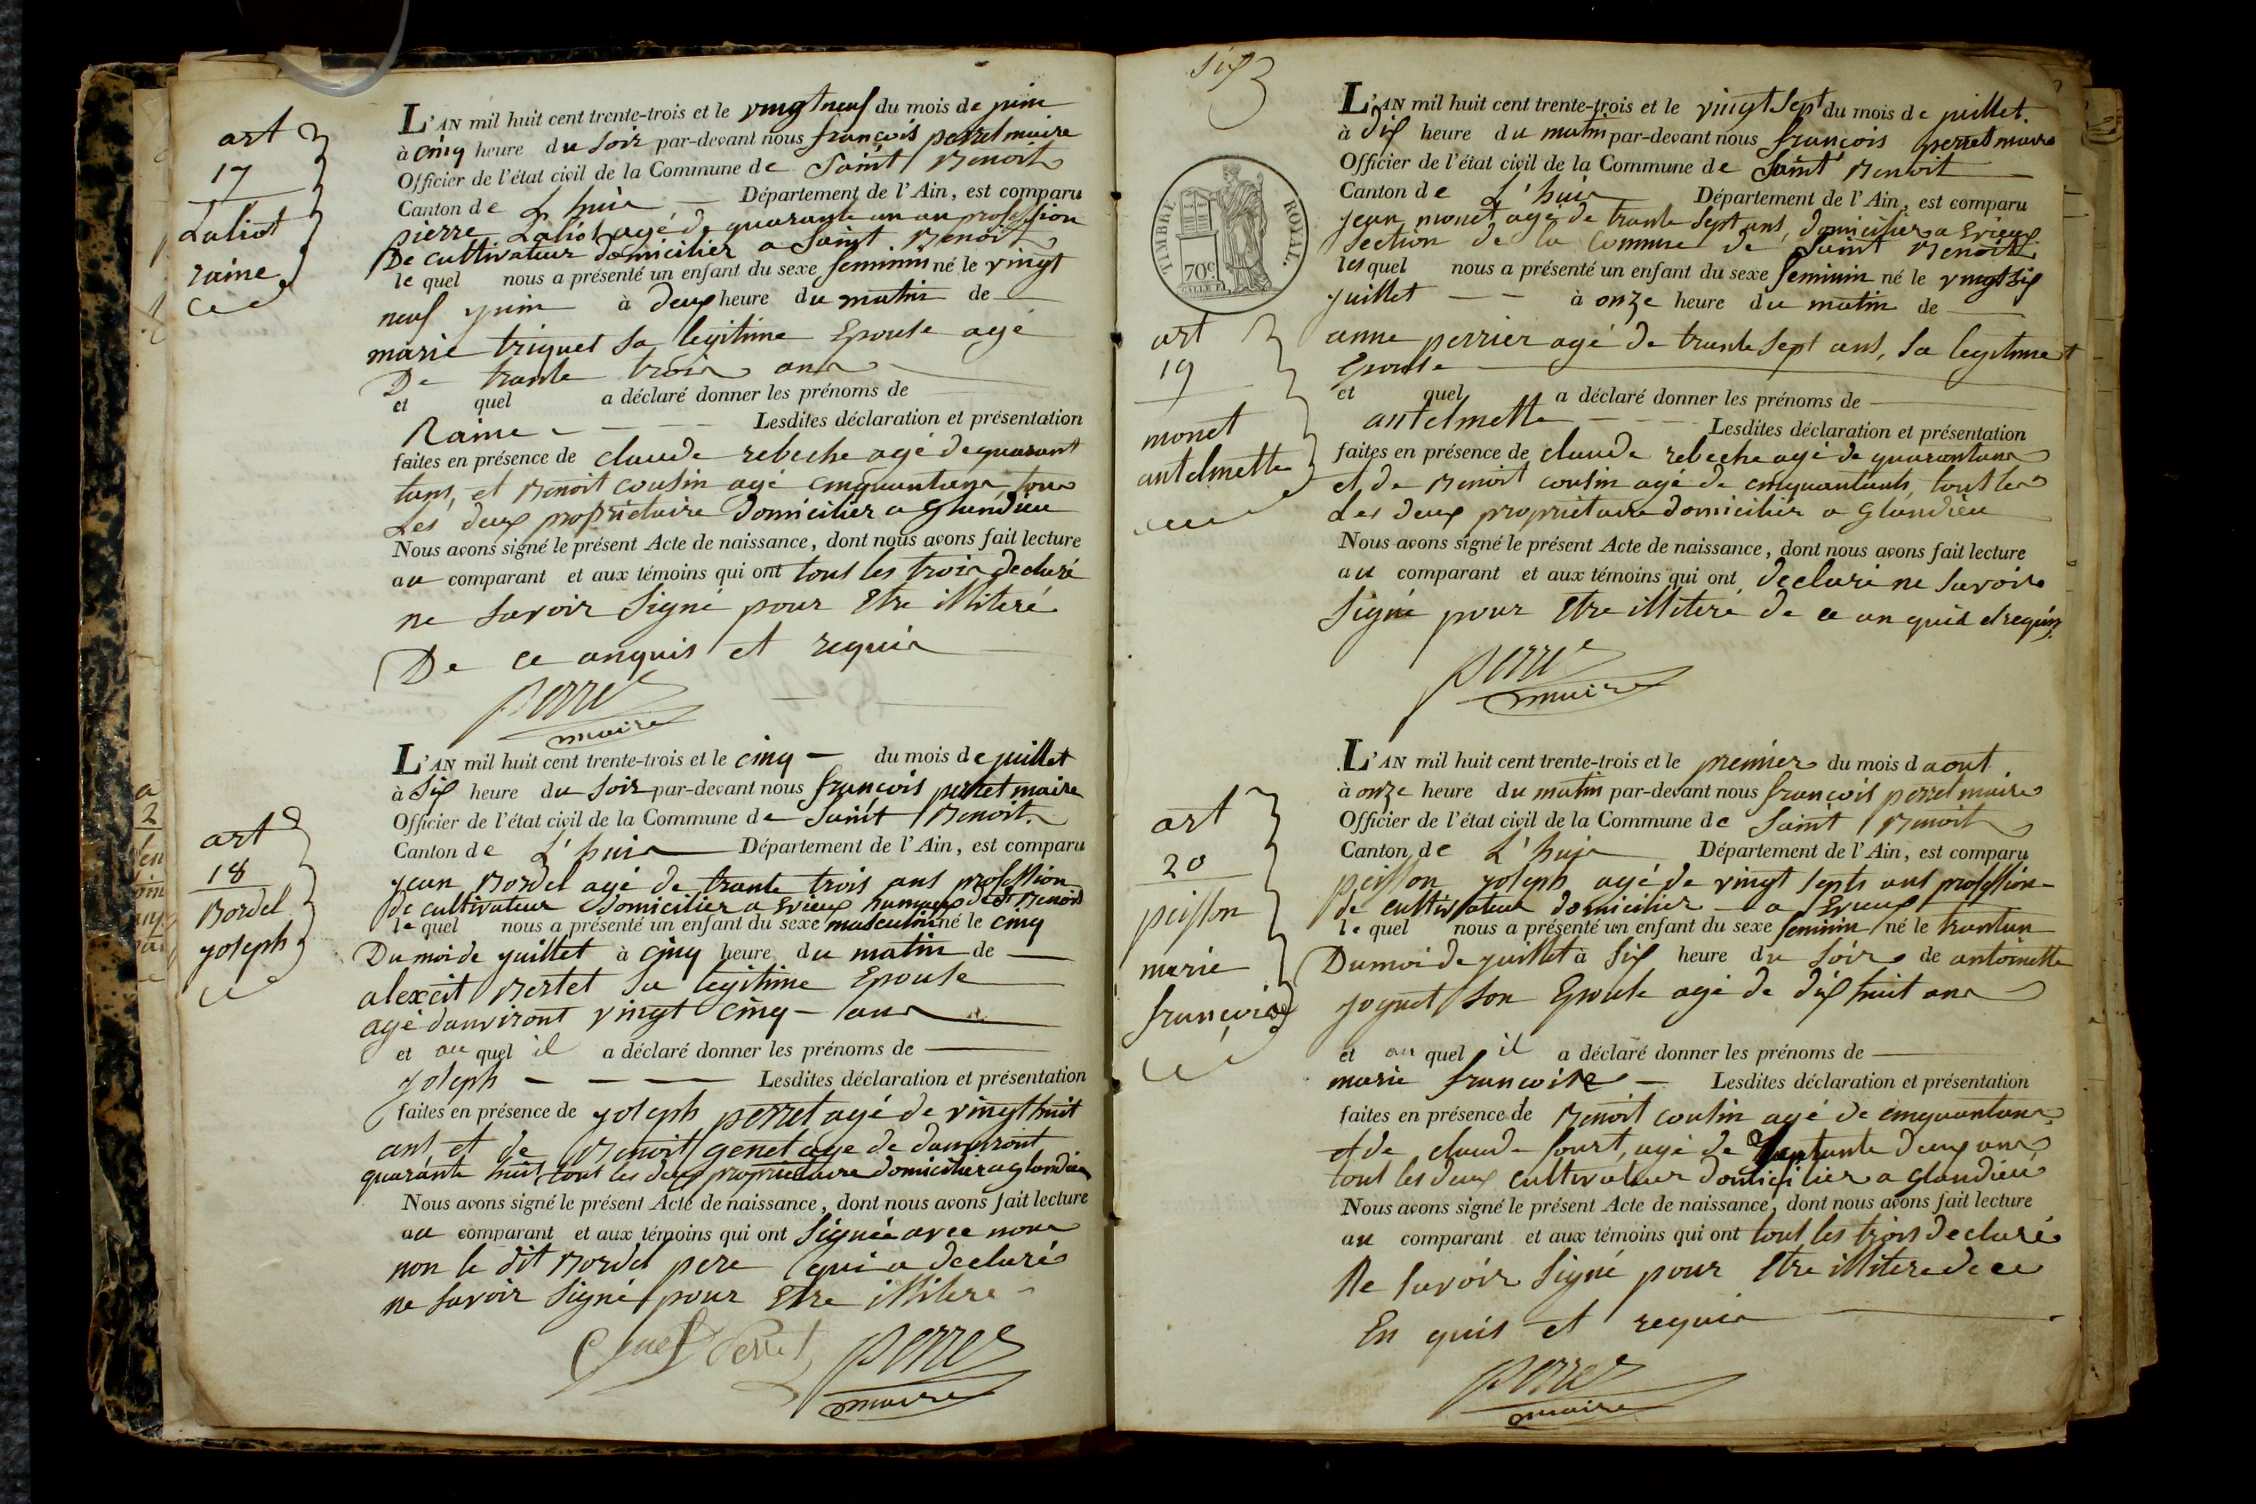 art
17
Laliot
raine
L'AN mil huit cent trente-trois et le vingt neuf du mois de juin
à cinq heure du soir par-devant nous françois perret maire
Officier de l'état civil de la Commune de Saint Benoit
Canton de L'huis Département de l'Ain, est comparu
pierre Laliot agé de quarante un an profession
De cultivateur domicilier a Saint Benoit
le quel nous a présenté un enfant du sexe feminin né le vingt
neuf juin à deux heure du matin de
marie triquet sa legitime Epouse agé
De trante trois ans
et quel a déclaré donner les prénoms de
Raine Lesdites déclaration et présentation
faites en présence de claude rebeche agé de quarant
tans, et Benoit cousin agé cinquantans, tous
Les deux propriétaire domicilier a glandieu
Nous avons signé le présent Acte de naissance, dont nous avons fait lecture
au comparant et aux témoins qui ont tout les trois declaré
ne savoir Signé pour Etre illiteré
De ce anquis et requis
perret
maire
art
18
Bordel
joseph
L'AN mil huit cent trente-trois et le cinq du mois de juillet
à Six heure du soir par-devant nous françois perret maire
Officier de l'état civil de la Commune de Saint Benoit
Canton de L'huis Département de l'Ain, est comparu
jean Bordel agé de trante trois ans profession
de cultivateur domicilier a Evieux hameux de St Benoit
le quel nous a présenté un enfant du sexe masculin né le cinq
Du moi de juillet à cinq heure du matin de
alexcit Bertet sa legitime Epouse
agé danviront vingt cinq ans
et au quel il a déclaré donner les prénoms de
joseph Lesdites déclaration et présentation
faites en présence de joseph perret agé de vingt huit
ans et de Benoit genet age de danviront
quarante huit tout les deux propriétaire domicilier a glandieu
Nous avons signé le présent Acte de naissance, dont nous avons fait lecture
au comparant et aux témoins qui ont Signée avec nous
non le dit Bordel pere qui a declaré
ne savoir Signé pour Etre illitere
genet Perret perret
maire
six
TIMBRE ROYAL.
70c
art
19
monet
antelmette
L'AN mil huit cent trente-trois et le vingt sept du mois de juillet
à dix heure du matin par-devant nous françois perret maire
Officier de l'état civil de la Commune de Saint Benoit
Canton de L'huis Département de l'Ain, est comparu
jean monet age de trante sept ans, domicilier a Evieux
section de la commune de Saint Benoit
les quel nous a présenté un enfant du sexe feminin né le vingt six
juillet à onze heure du matin de
anne perrier agé de trante sept ans, sa legitime
Epouse
et quel a déclaré donner les prénoms de
antelmette Lesdites déclaration et présentation
faites en présence de claude rebeche agé de quarantans
et de Benoit cousin agé de cinquantants tout les
des deux propriétaire domicilier a glandieu
Nous avons signé le présent Acte de naissance, dont nous avons fait lecture
au comparant et aux témoins qui ont declaré ne savoir
Signé pour Etre illiteré de ce an quis et requis
perret
maire
art
20
peisson
marie
françoise
L'AN mil huit cent trente-trois et le premier du mois d aout
à onze heure du matin par-devant nous françois perret maire
Officier de l'état civil de la Commune de Saint Benoit
Canton de L'huis Département de l'Ain, est comparu
peisson joseph agé de vingt septs ans profession
de cultivateur domicilier a Evieux
le quel nous a présenté un enfant du sexe feminin né le trantun
Du moi de juillet à six heure du soir de antoinette
joguet son Epouse agé de dix huit ans
et au quel il a déclaré donner les prénoms de
marie francoise Lesdites déclaration et présentation
faites en présence de Benoit cousin agé de cinquantans
et de claude fourt, agé de Santante deux ans
tout les deux cultivateur domicilier a glandieu
Nous avons signé le présent Acte de naissance, dont nous avons fait lecture
au comparant et aux témoins qui ont tout les trois declaré
Ne savoir Signé pour Etre illitere de ce
En quis et requis
perret
maire